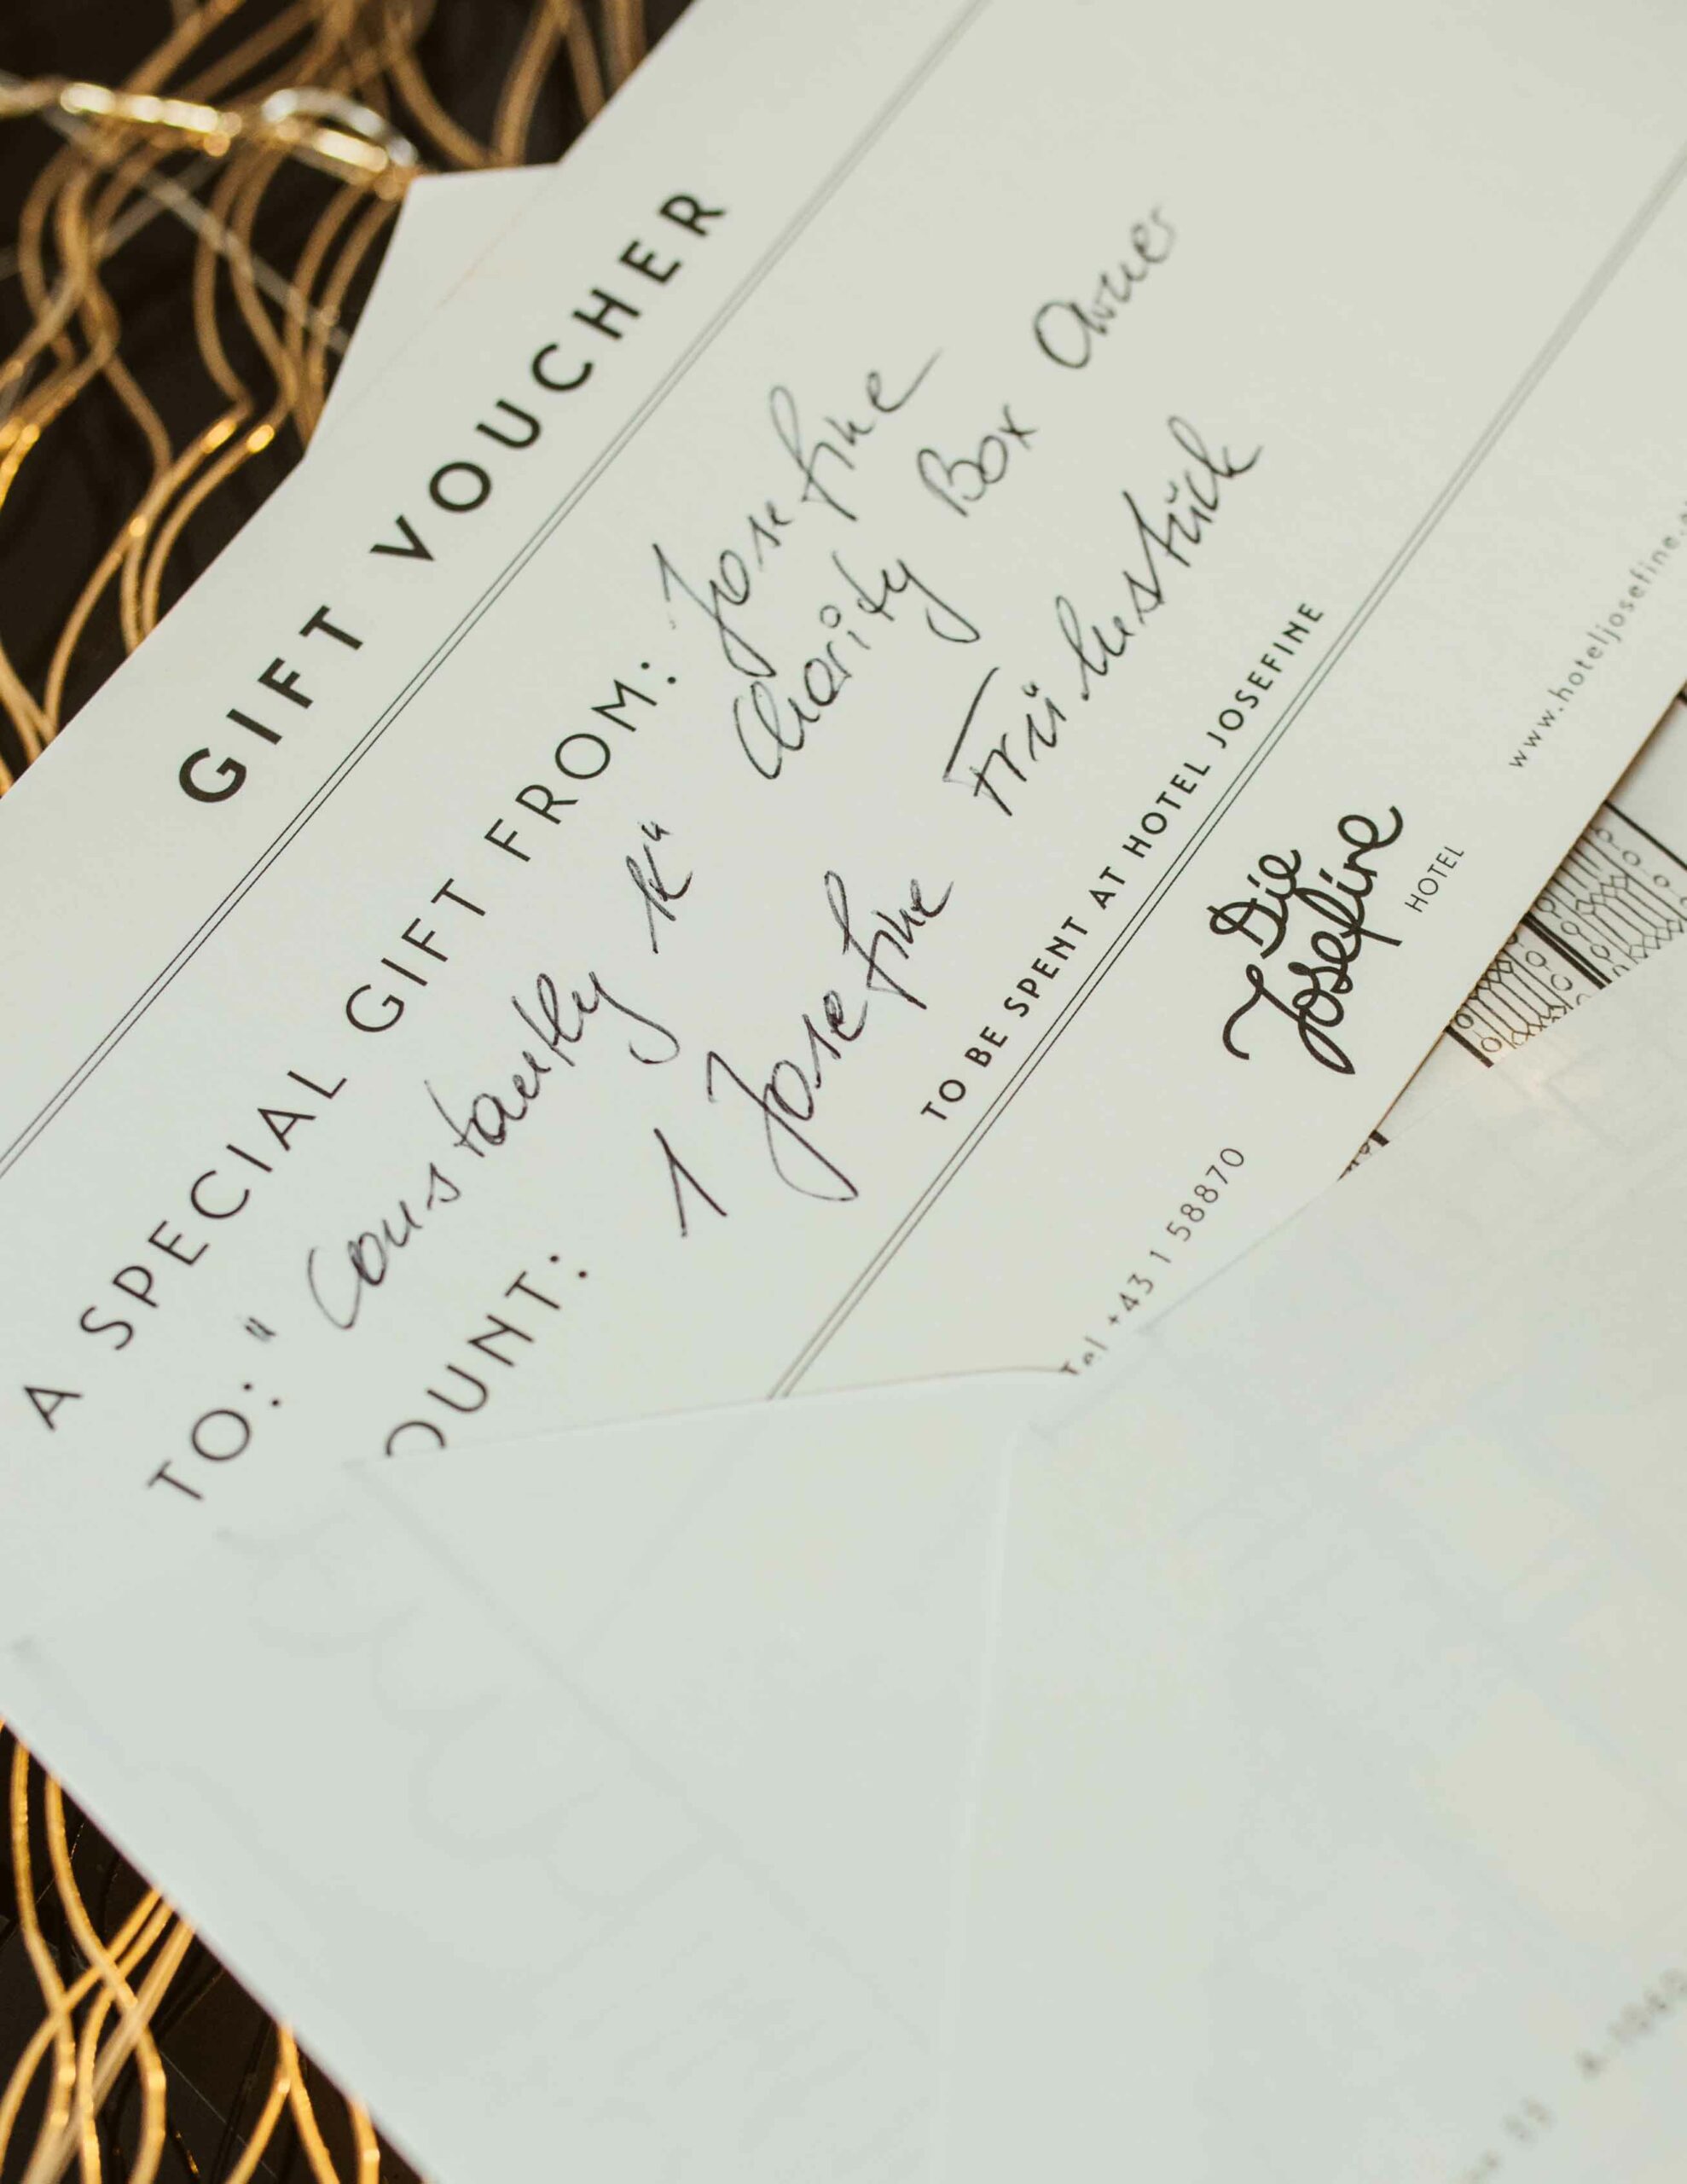 GIFT VOUCHER
A SPECIAL GIFT FROM: Josefine
TO: "Constantly K" Charity Box Owner
OUNT: 1 Josefine Frühstück
TO BE SPENT AT HOTEL JOSEFINE
Die
Josefine
HOTEL
Tel +43 1 58870
www.hoteljosefine.